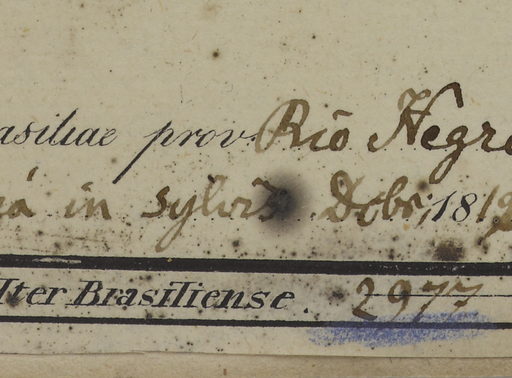 asiliae prov. Rio Negro
in sylvis Debr. 181
Iter Brasiliense. 2977